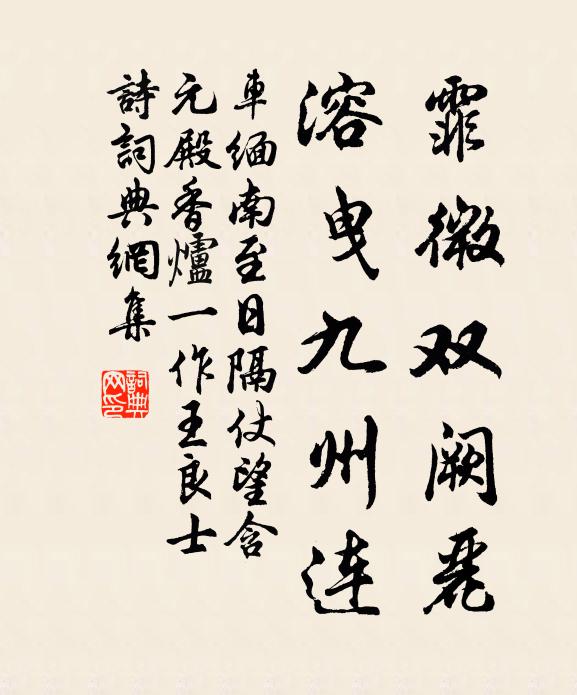 霏微双阙麗
溶曳九州连
車缅南至日隔仗望含
元殿香爐一作王良士
詩詞典網集
詞典网印